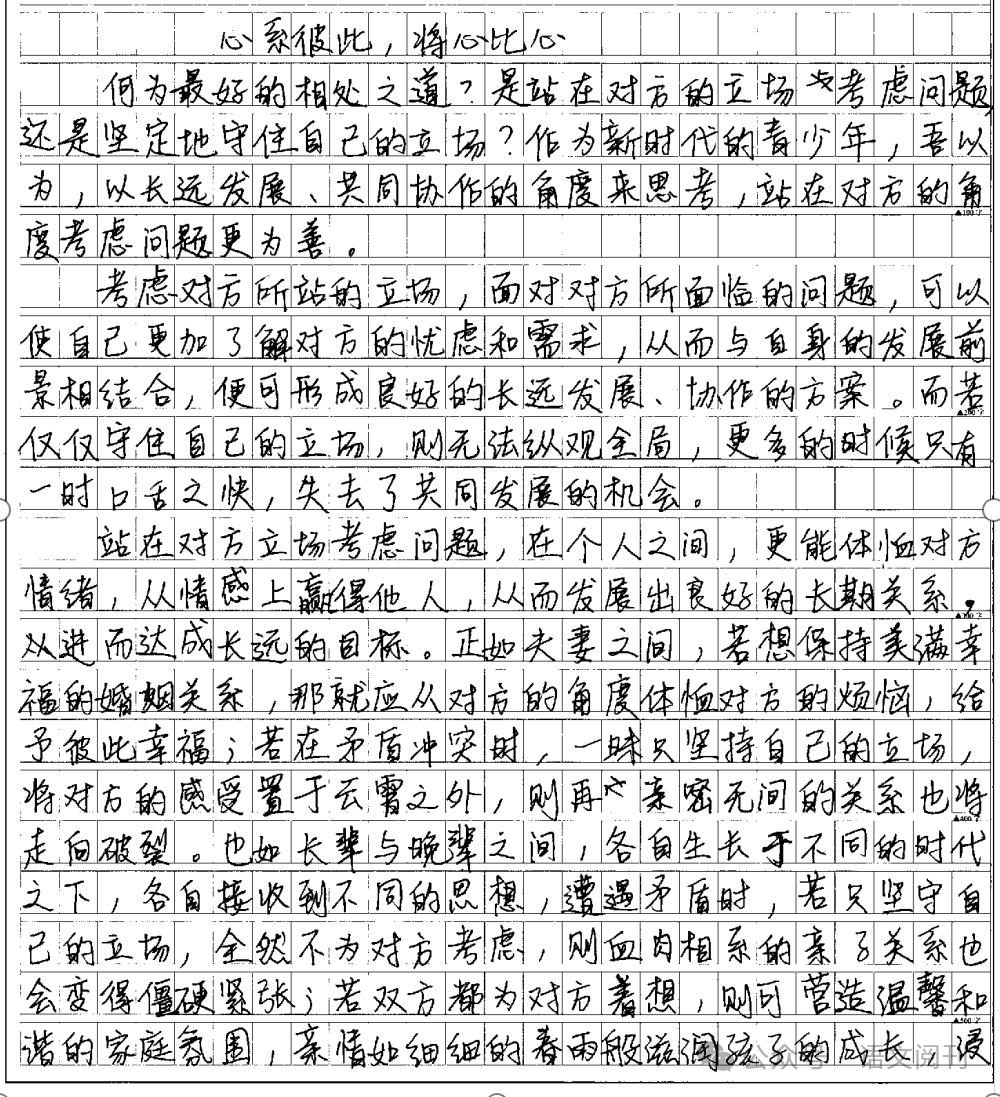 心系彼此，将心比心
何为最好的相处之道？是站在对方的立场考虑问题，
还是坚定地守住自己的立场？作为新时代的青少年，吾以
为，以长远发展、共同协作的角度来思考，站在对方的角
▲100字
度考虑问题更为善。
考虑对方所站的立场，面对对方所面临的问题，可以
使自己更加了解对方的忧虑和需求，从而与自身的发展前
景相结合，便可形成良好的长远发展、协作的方案。而若
▲200字
仅仅守住自己的立场，则无法纵观全局，更多的时候只有
一时口舌之快，失去了共同发展的机会。
站在对方立场考虑问题，在个人之间，更能体恤对方
情绪，从情感上赢得他人，从而发展出良好的长期关系，
▲300字
从进而达成长远的目标。正如夫妻之间，若想保持美满幸
福的婚姻关系，那就应从对方的角度体恤对方的烦恼，给
予彼此幸福；若在矛盾冲突时，一味只坚持自己的立场，
将对方的感受置于云霄之外，则再亲密无间的关系也将
▲400字
走向破裂。也如长辈与晚辈之间，各自生长于不同的时代
之下，各自接收到不同的思想，遭遇矛盾时，若只坚守自
己的立场，全然不为对方考虑，则血肉相系的亲子关系也
会变得僵硬紧张；若双方都为对方着想，则可营造温馨和
▲500字
谐的家庭氛围，亲情如细细的春雨般滋润孩子的成长，浸
公众号 语文阅刊